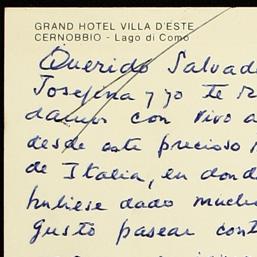 GRAND HOTEL VILLA D'ESTE
CERNOBBIO - Lago di Como
Querido Salvad
Josefina y yo te
damos con vivo a
desde este precioso
de Italia, en dond
hubiese dado mucho
gusto pasear cont